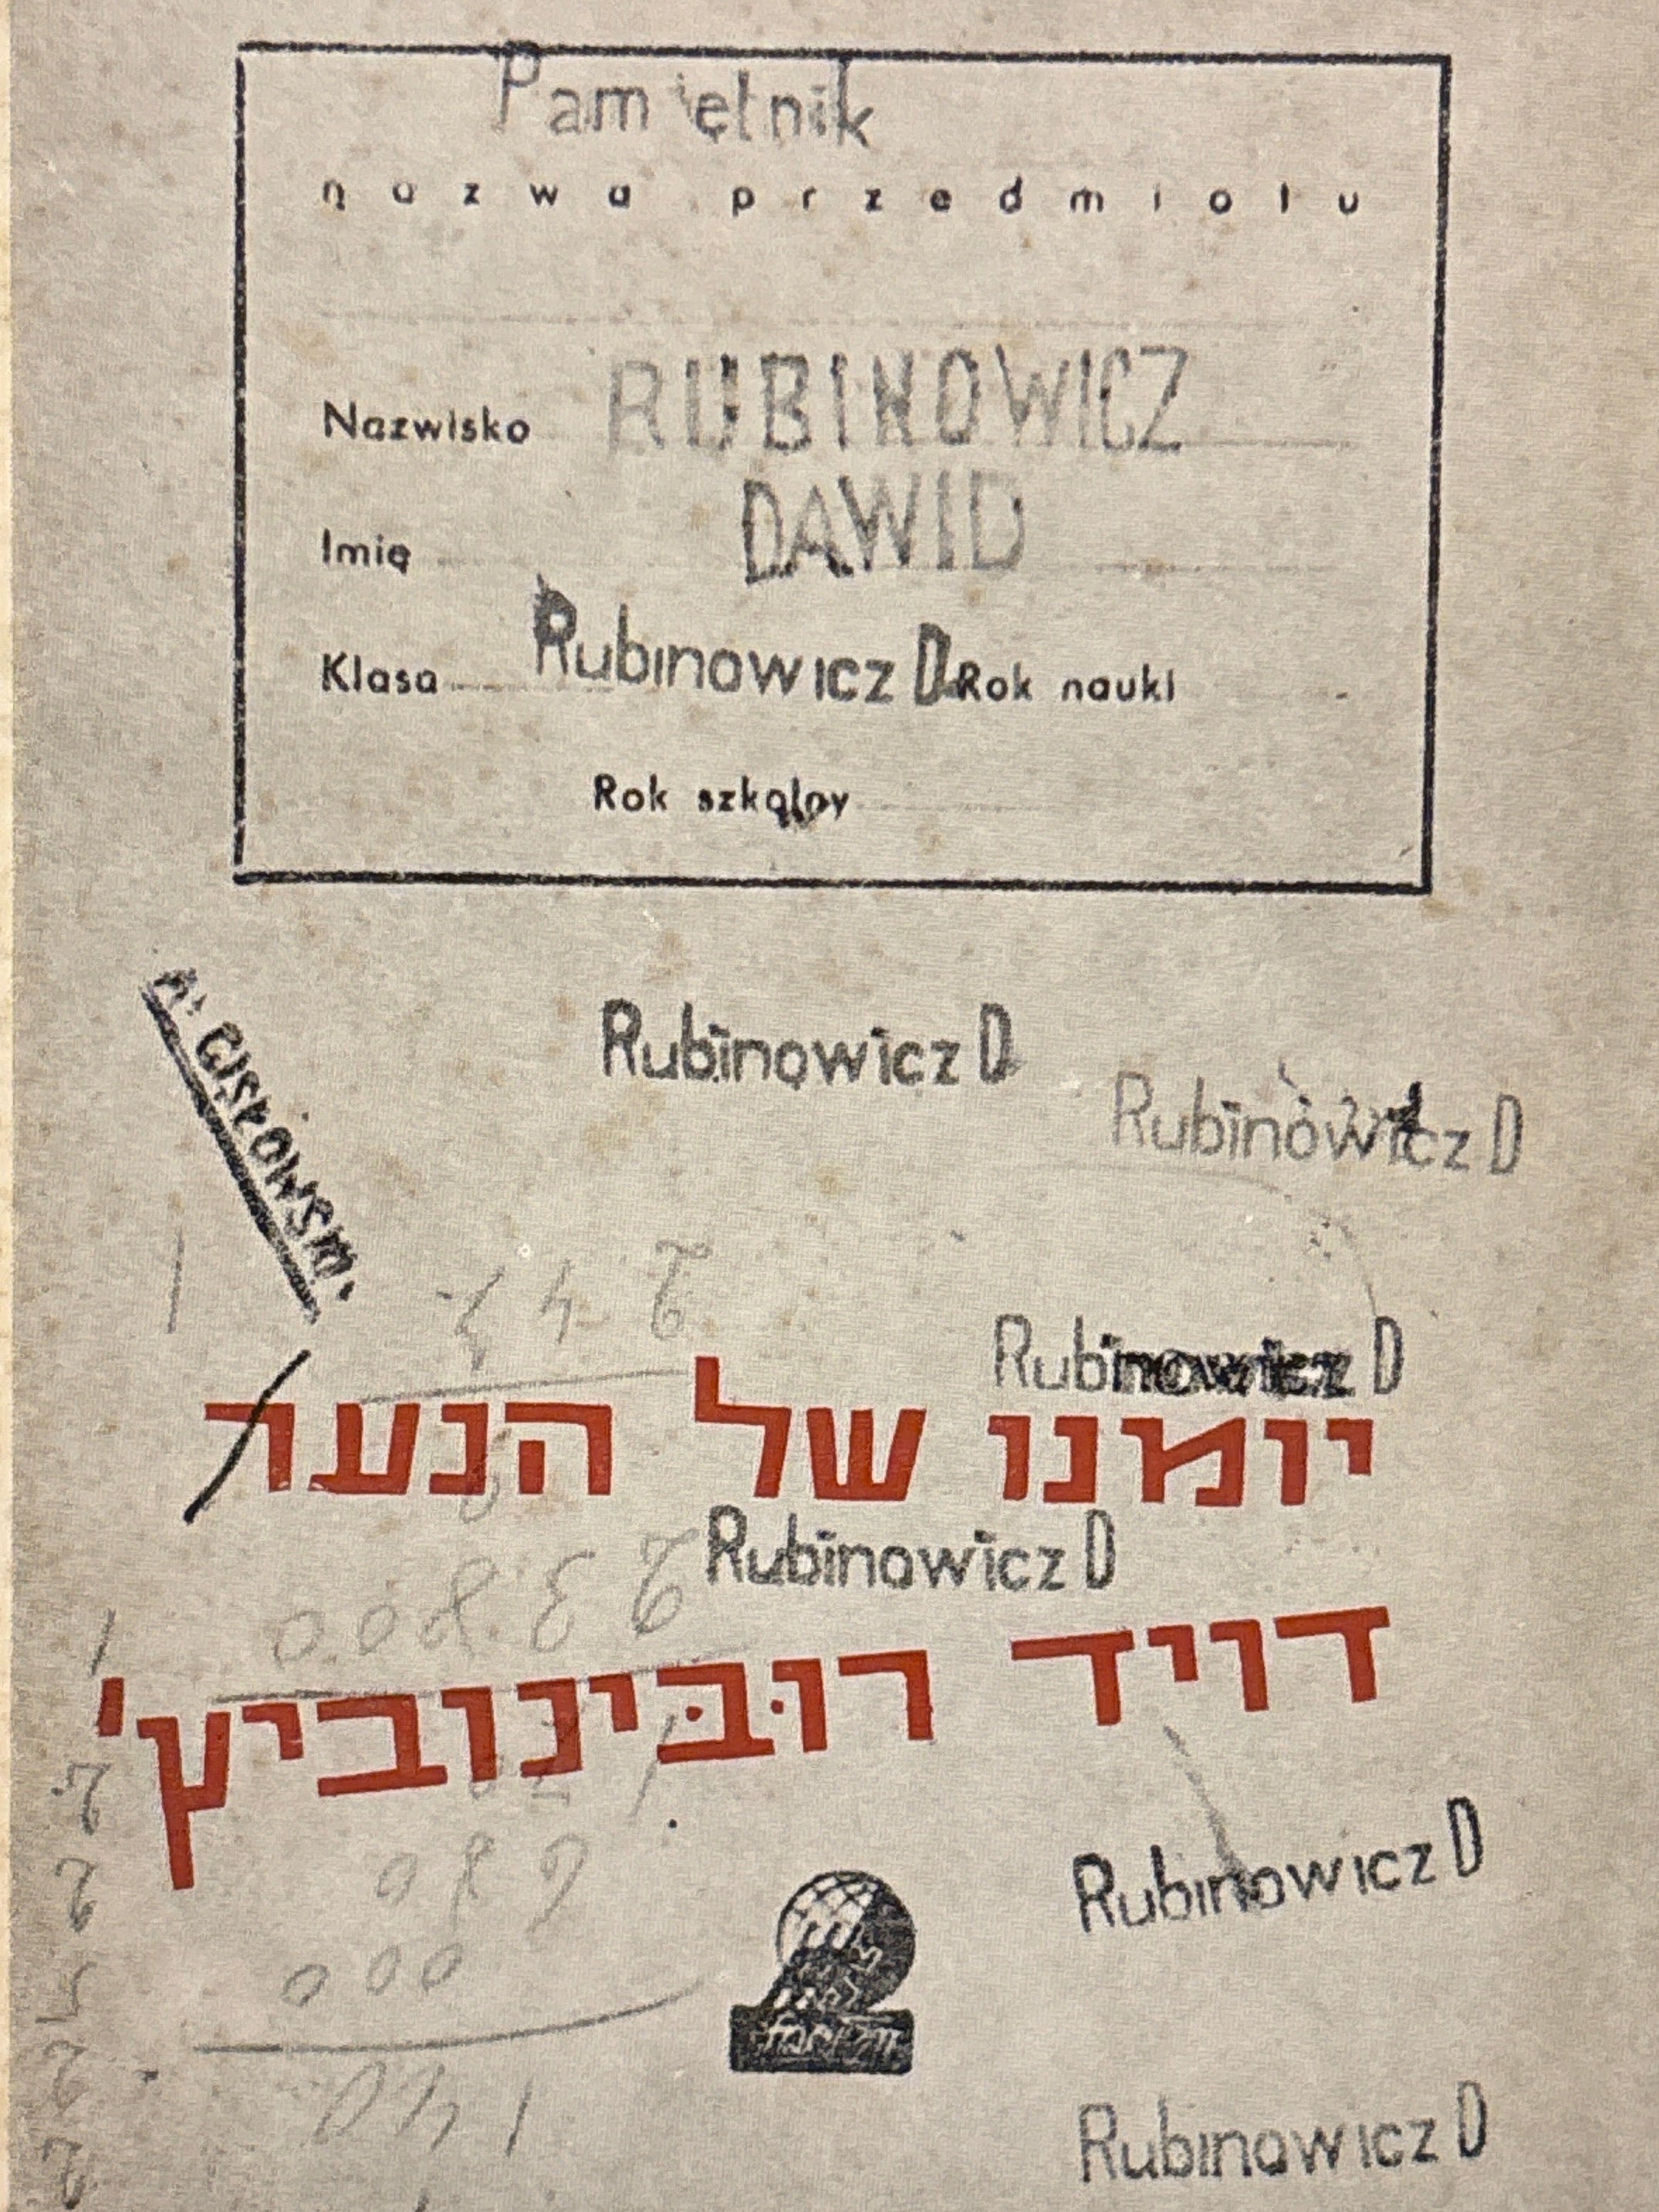 Pamiętnik
nazwa przedmiotu
Nazwisko RUBINOWICZ
Imię DAWID
Klasa Rubinowicz D Rok nauki
Rok szkolny
Rubinowicz D
Rubinowicz D
Rubinowicz D
יומנו של הנער
Rubinowicz D
דויד רוּבּינוביץ'
Rubinowicz D
Rubinowicz D